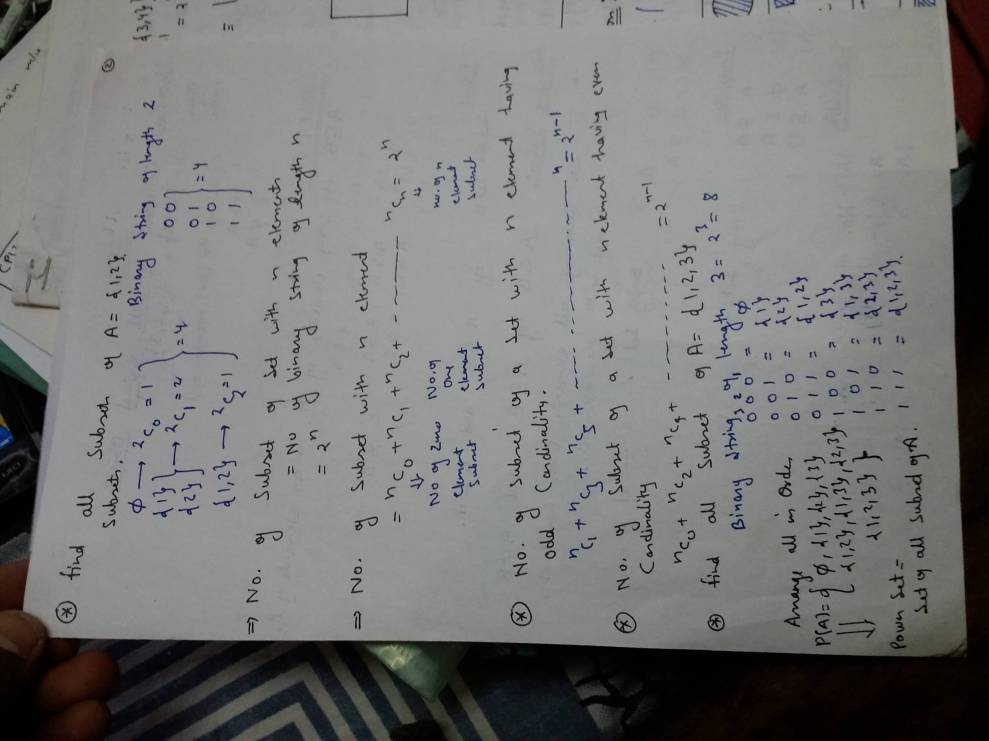 ⊛ find all Subsets of A = {1,2}.
Subsets.
Binary String of length 2
ϕ → ²C₀ = 1
{1}
{2} → ²C₁ = 2
{1,2} → ²C₂ = 1
= 4
0 0
0 1
1 0
1 1
= 4
⇒ No. of Subset of Set with n elements
= No of binary String of length n
= 2ⁿ
⇒ No. of Subset with n element
= ⁿC₀ + ⁿC₁ + ⁿC₂ + - ——— ⁿCₙ = 2ⁿ
No of Zero element Subset
No. of One element Subset
no. of n element Subset
⊛ No. of Subset of a Set with n element having
odd Cardinality.
ⁿC₁ + ⁿC₃ + ⁿC₅ + ——— ⁿ = 2ⁿ⁻¹
⊛ No. of Subset of a Set with n element having even
Cardinality
ⁿC₀ + ⁿC₂ + ⁿC₄ + - - - - - - - - = 2ⁿ⁻¹
⊛ find all Subset of A = {1,2,3}
Binary Strings of length 3 = 2³ = 8
0 0 0 = ϕ
0 0 1 = {1}
0 1 0 = {2}
0 1 1 = {1,2}
1 0 0 = {3}
1 0 1 = {1,3}
1 1 0 = {2,3}
1 1 1 = {1,2,3}.
Arrange all in Order
P(A) = { ϕ, {1}, {2}, {3}
{1,2}, {1,3}, {2,3}
{1,2,3} }
Power Set =
Set of all Subset of A.
{3,4}